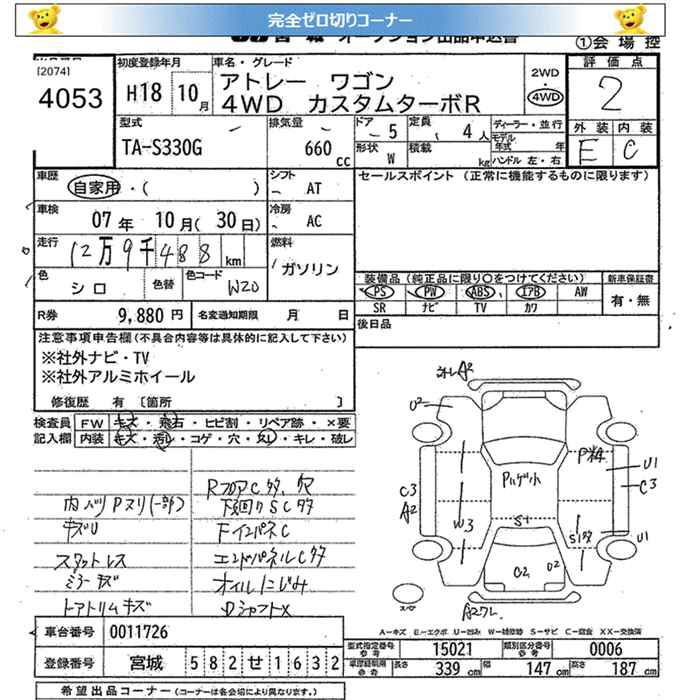 完全ゼロ切りコーナー
①会場控
[2074]
4053
初度登録年月
H18 10月
車名・グレード
アトレー ワゴン
4WD カスタムターボR
2WD
4WD
評価点
2
外装 内装
E C
型式
TA-S330G
排気量
660 cc
ドア 5
形状 W
定員 4人
積載 kg
ディーラー・並行
モデル年式 年
ハンドル 左・右
車歴
自家用・( )
シフト
AT
車検
07年 10月( 30日)
冷房
AC
走行
12万9千488km
燃料
ガソリン
色
シロ
色替
色コード
W20
R券 9,880円
名変通知期限 月 日
セールスポイント (正常に機能するものに限ります)
装備品 (純正品に限り○をつけてください)
PS PW ABS エアB AW
SR ナビ TV カワ
新車保証書
有・無
後日品
注意事項申告欄(不具合内容等は具体的に記入して下さい)
※社外ナビ・TV
※社外アルミホイール
修復歴 有 [箇所 ]
検査員記入欄
FW キズ・飛石・ヒビ割・リペア跡・×要
内装 キズ・汚レ・コゲ・穴・スレ・キレ・破レ
RフロアCサタ、穴
内ハツリPヌリ(一部)
下回りSCサタ
キズU
FインパネC
スタットレス
エンドパネルCサタ
ミラーキズ
オイルにじみ
トアトリムキズ
DシャフトX
A2
U2
U1
C3
C3
A2
W3
S1
U1
C2
U2
スペア
A-キズ E-エクボ U-凹み W-補修跡 S-サビ C-腐食 XX-交換済
車台番号 0011726
登録番号 宮城 582せ1632
型式指定番号 参考 15021
類別区分番号 参考 0006
車庫証明用 参考 長さ 339cm 幅 147cm 高さ 187cm
希望出品コーナー(コーナーは各会場により異なります。)